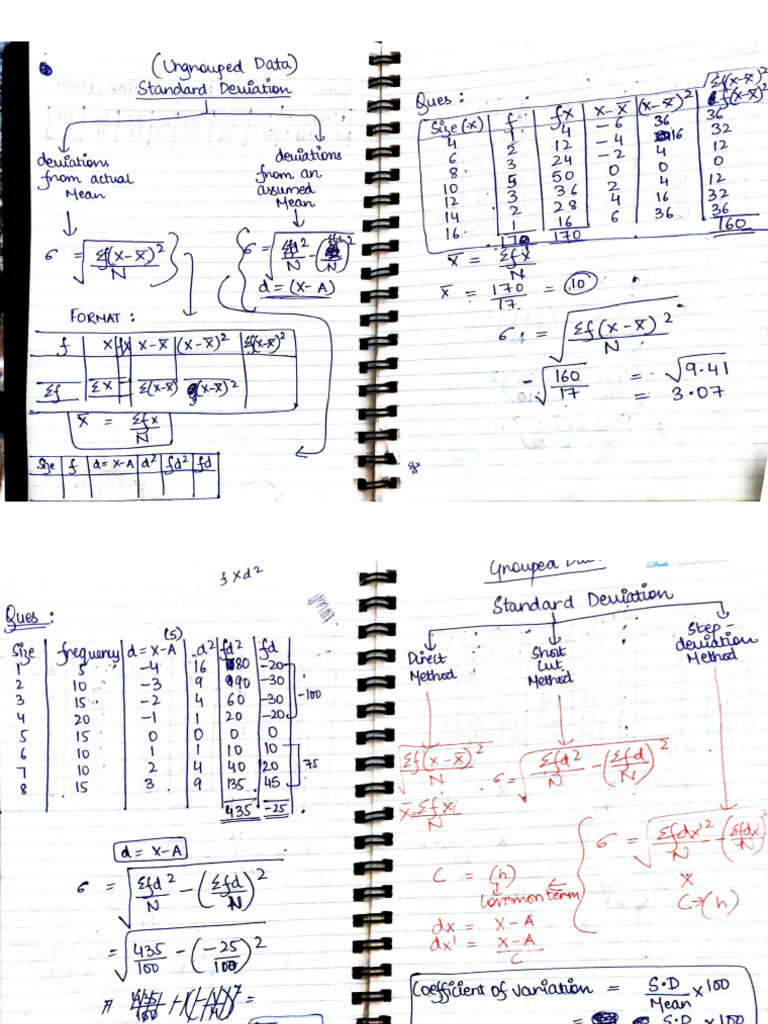 (Ungrouped Data)
Standard Deviation
deviations from actual Mean
deviations from an assumed Mean
σ = √Σf(x-x̄)²/N
σ = √Σfd²/N -
d = (x-A)
FORMAT :
f x fx x-x̄ (x-x̄)² Σf(x-x̄)²
Σf Σx Σ(x-x̄) (x-x̄)²
x̄ = Σfx/N
Size f d = x-A d² fd² fd
Ques :
√Σf(x-x̄)²
Size (x) f fx x-x̄ (x-x̄)² f(x-x̄)²
4 1 4 -6 36 36
6 2 12 -4 16 32
8 3 24 -2 4 12
10 5 50 0 0 0
12 3 36 2 4 12
14 2 28 4 16 32
16 1 16 6 36 36
170 170 160
x̄ = Σfx/N
x̄ = 170/17 = 10
σ = √Σf(x-x̄)²/N
= √160/17 = √9.41
= 3.07
Σfx
f x d²
Ques :
(5)
Size frequency d = x-A d² fd² fd
1 5 -4 16 80 -20
2 10 -3 9 90 -30
3 15 -2 4 60 -30
4 20 -1 1 20 -20
-100
5 15 0 0 0 0
6 10 1 1 10 10
7 10 2 4 40 20
8 15 3 9 135 45
75
435 -25
d = x-A
σ = √Σfd²/N - (Σfd/N)²
= √435/100 - (-25/100)²
Grouped
Standard Deviation
Direct Method
Short Cut Method
Step-deviation Method
√Σf(x-x̄)²/N
x̄ = Σfx/N
σ = √Σfd²/N - (Σfd/N)²
σ = √Σfdx'²/N - (Σfdx'/N)²
x
C→(h)
C = (h)
Common term
dx = x-A
dx' = x-A/C
Coefficient of variation = S.D/Mean x 100
= S.D x 100